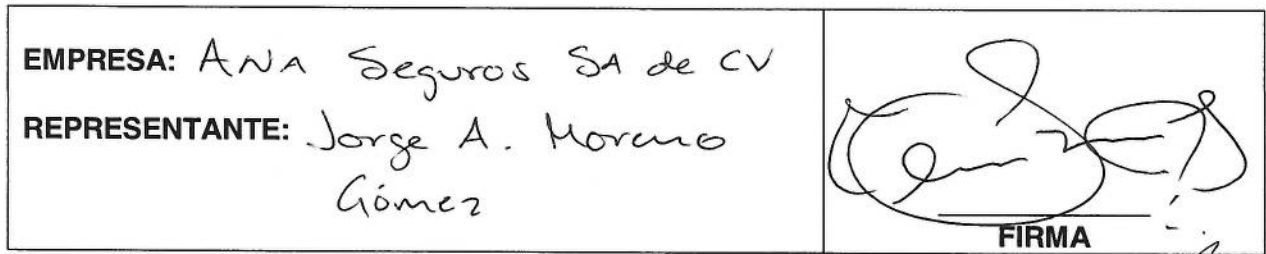 EMPRESA: ANA Seguros SA de CV
REPRESENTANTE: Jorge A. Moreno
Gómez
FIRMA